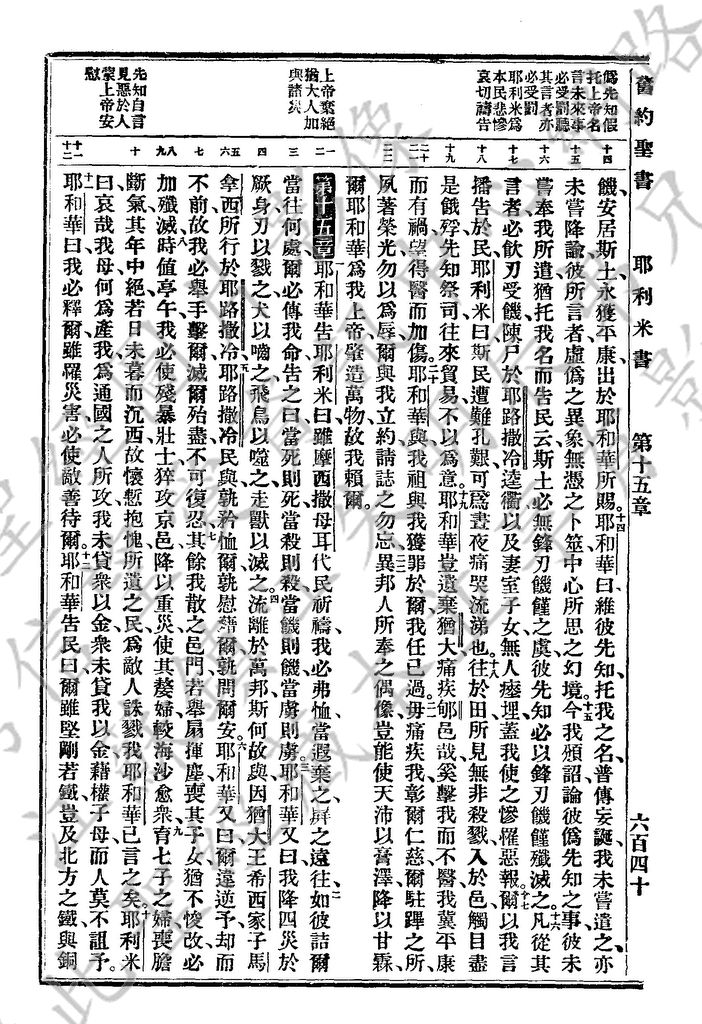 舊約聖書 耶利米書 第十五章 六百四十
僞先知假托上帝名
言未來事必受罰聽
其言者亦必受罰
耶利米爲本民悲慘
哀切禱告
上帝棄絕猶大人加
與諸災
先知自言見惡於人
蒙上帝安慰
十四
十五
十六
十七
十八
十九
二十
二一
二二
一二
三
四
五六
七
八九
十
十一
十二
饑、安居斯土、永獲平康、出於耶和華所賜、十四耶和華曰、維彼先知、托我之名、普傳妄誕、我未嘗遣之、亦
未嘗降諭、彼所言者、虛僞之異象、無憑之卜筮、中心所思之幻境、十五今我頒詔、論彼僞先知之事、彼未
嘗奉我所遣、猶托我名而告民云、斯土必無鋒刃饑饉之虞、彼先知必以鋒刃饑饉殲滅之、十六凡從其
言者、必飲刃受饑、陳尸於耶路撒冷逵衢、以及妻室子女、無人瘞埋、蓋我使之慘罹惡報、十七爾以我言
播告於民、耶利米曰、斯民遭難孔艱、可爲晝夜痛哭流涕也、十八往於田、所見無非殺戮、入於邑、觸目盡
是餓殍、先知祭司往來貿易、不以爲意、十九耶和華豈遺棄猶大、痛疾郇邑哉、奚擊我而不醫、我冀平康
而有禍、望得醫而加傷、二十耶和華與、我祖與我獲罪於爾、我任已過、二一毋痛疾我、彰爾仁慈、爾駐蹕之所、
夙著榮光、勿以爲辱、爾與我立約、請誌之勿忘、二二異邦人所奉之偶像、豈能使天沛以膏澤、降以甘霖、
爾耶和華爲我上帝、肇造萬物、故我賴爾。
第十五章 一耶和華告耶利米曰、雖摩西撒母耳代民祈禱、我必弗恤、當遐棄之、屏之遠往、二如彼詰爾
當往何處、爾必傳我命、告之曰、當死則死、當殺則殺、當饑則饑、當虜則虜、三耶和華又曰、我降四災於
厥身、刃以戮之、犬以嚙之、飛鳥以噬之、走獸以滅之、四流離於萬邦、斯何故與、因猶大王希西家子馬
拿西所行於耶路撒冷、五耶路撒冷民與、孰矜恤爾、孰慰藉爾、孰問爾安、六耶和華又曰、爾違逆予、却而
不前、故我必舉手擊爾滅爾殆盡、不可復忍、七其餘我散之邑門、若舉扇揮塵、喪其子女、猶不悛改、必
加殲滅、八時值亭午、我必使殘暴壯士、猝攻京邑、降以重災、使其嫠婦較海沙愈衆、九育七子之婦、喪膽
斷氣、其年中絕、若日未暮而沉西、故懷慙抱愧、所遺之民、爲敵人誅戮、我耶和華已言之矣、十耶利米
曰、哀哉我母、何爲產我、爲通國之人所攻、我未貸衆以金、衆未貸我以金、藉權子母、而人莫不詛予。
十一耶和華曰、我必釋爾、雖罹災害、必使敵善待爾、十二耶和華告民曰、爾雖堅剛若鐵、豈及北方之鐵與銅